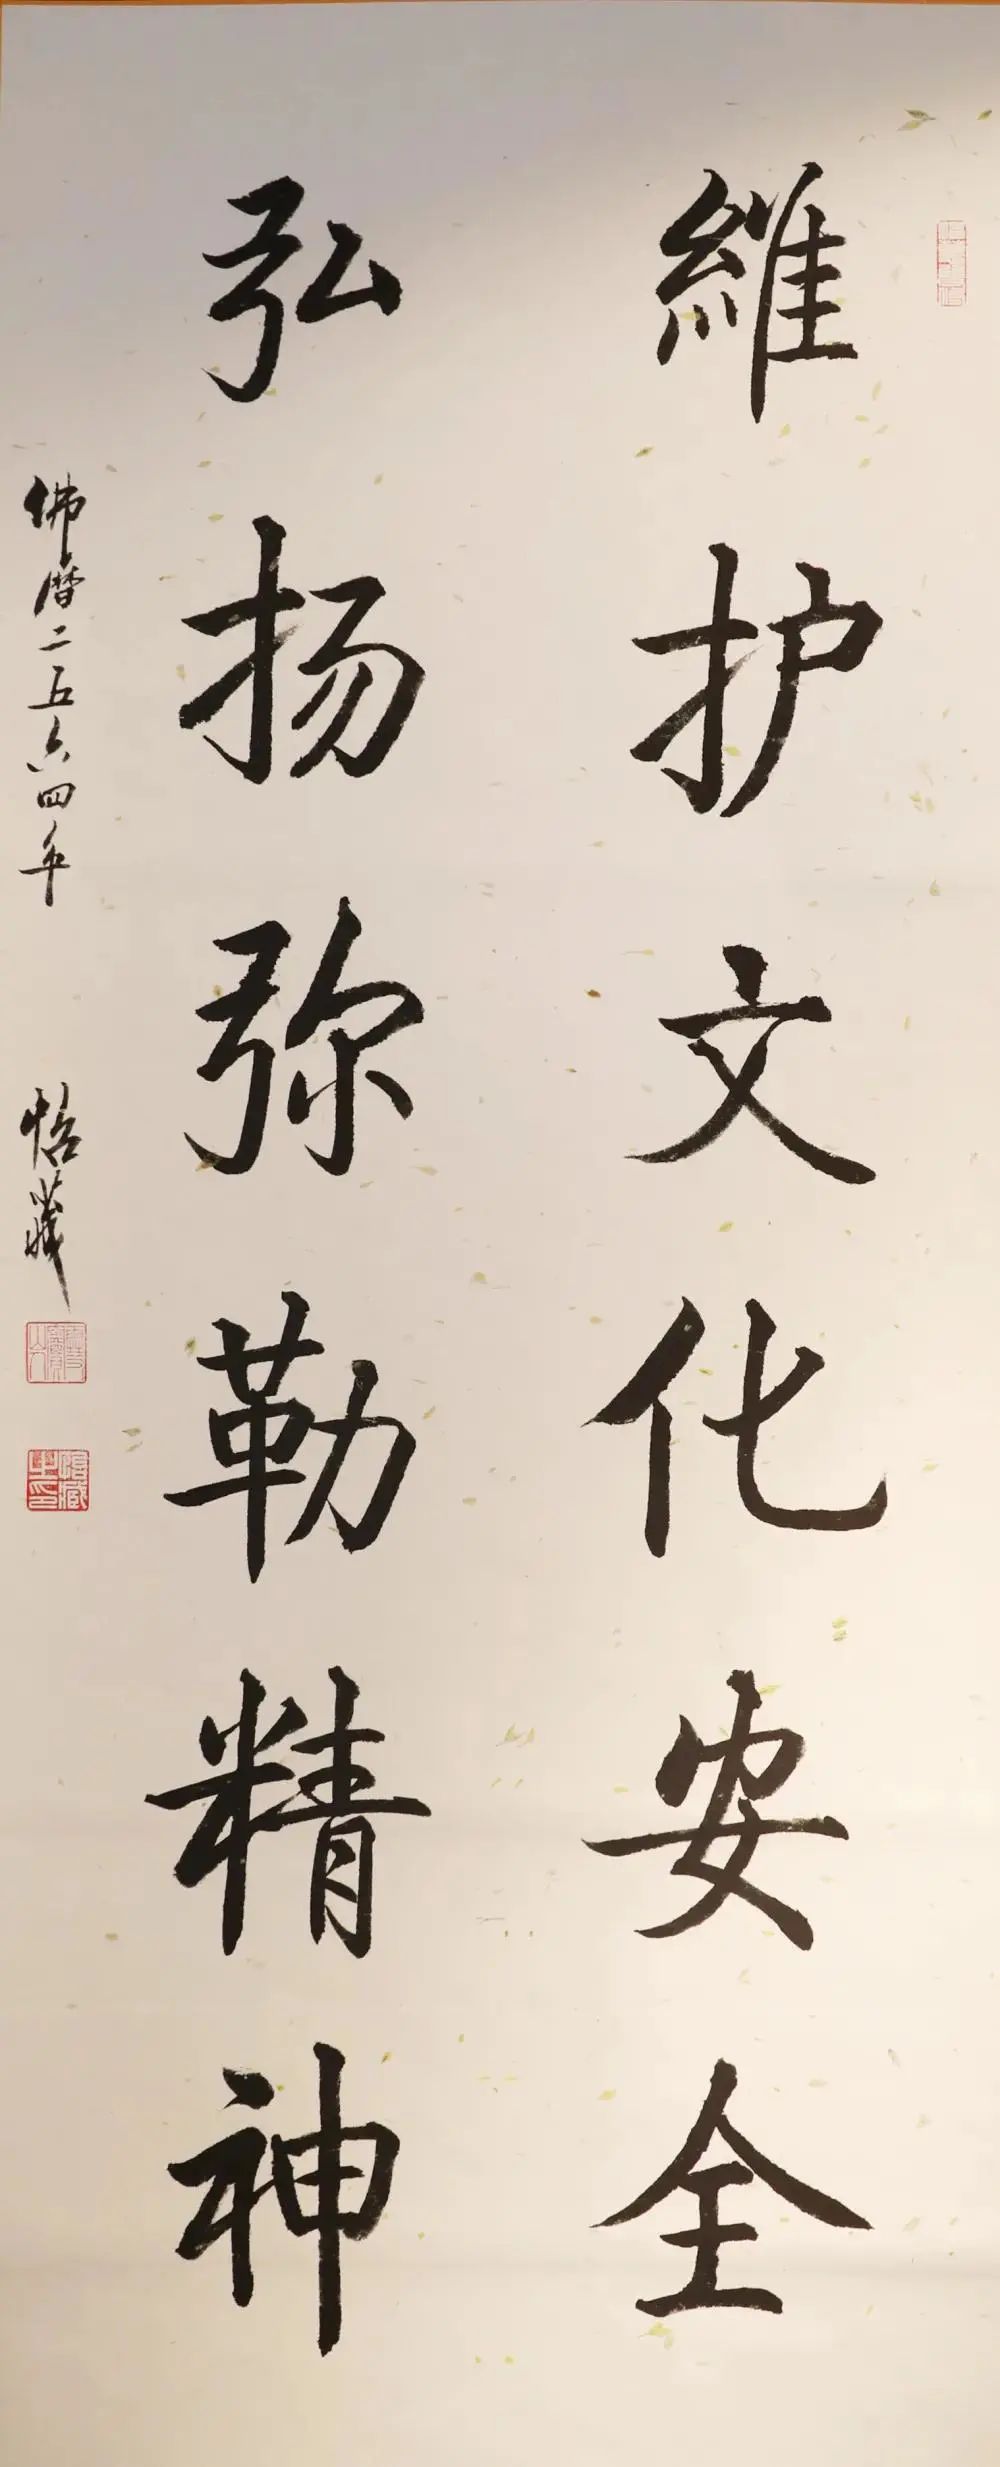 維护文化安全
弘扬弥勒精神
佛曆二五六四年 怡藏
怡藏之印